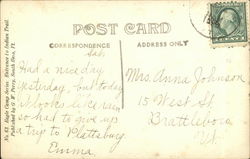 POST CARD
CORRESPONDENCE
ADDRESS ONLY
Sat.
Had a nice day
yesterday, but today
it looks like rain
so had to give up
a trip to Plattsburg
Emma.
Mrs. Anna Johnson
15 West St.
Brattleboro
Vt.
No. 842. Eagle Camp Series. Entrance to Indian Trail.
Published by G. W. Perry, South Hero, Vt.